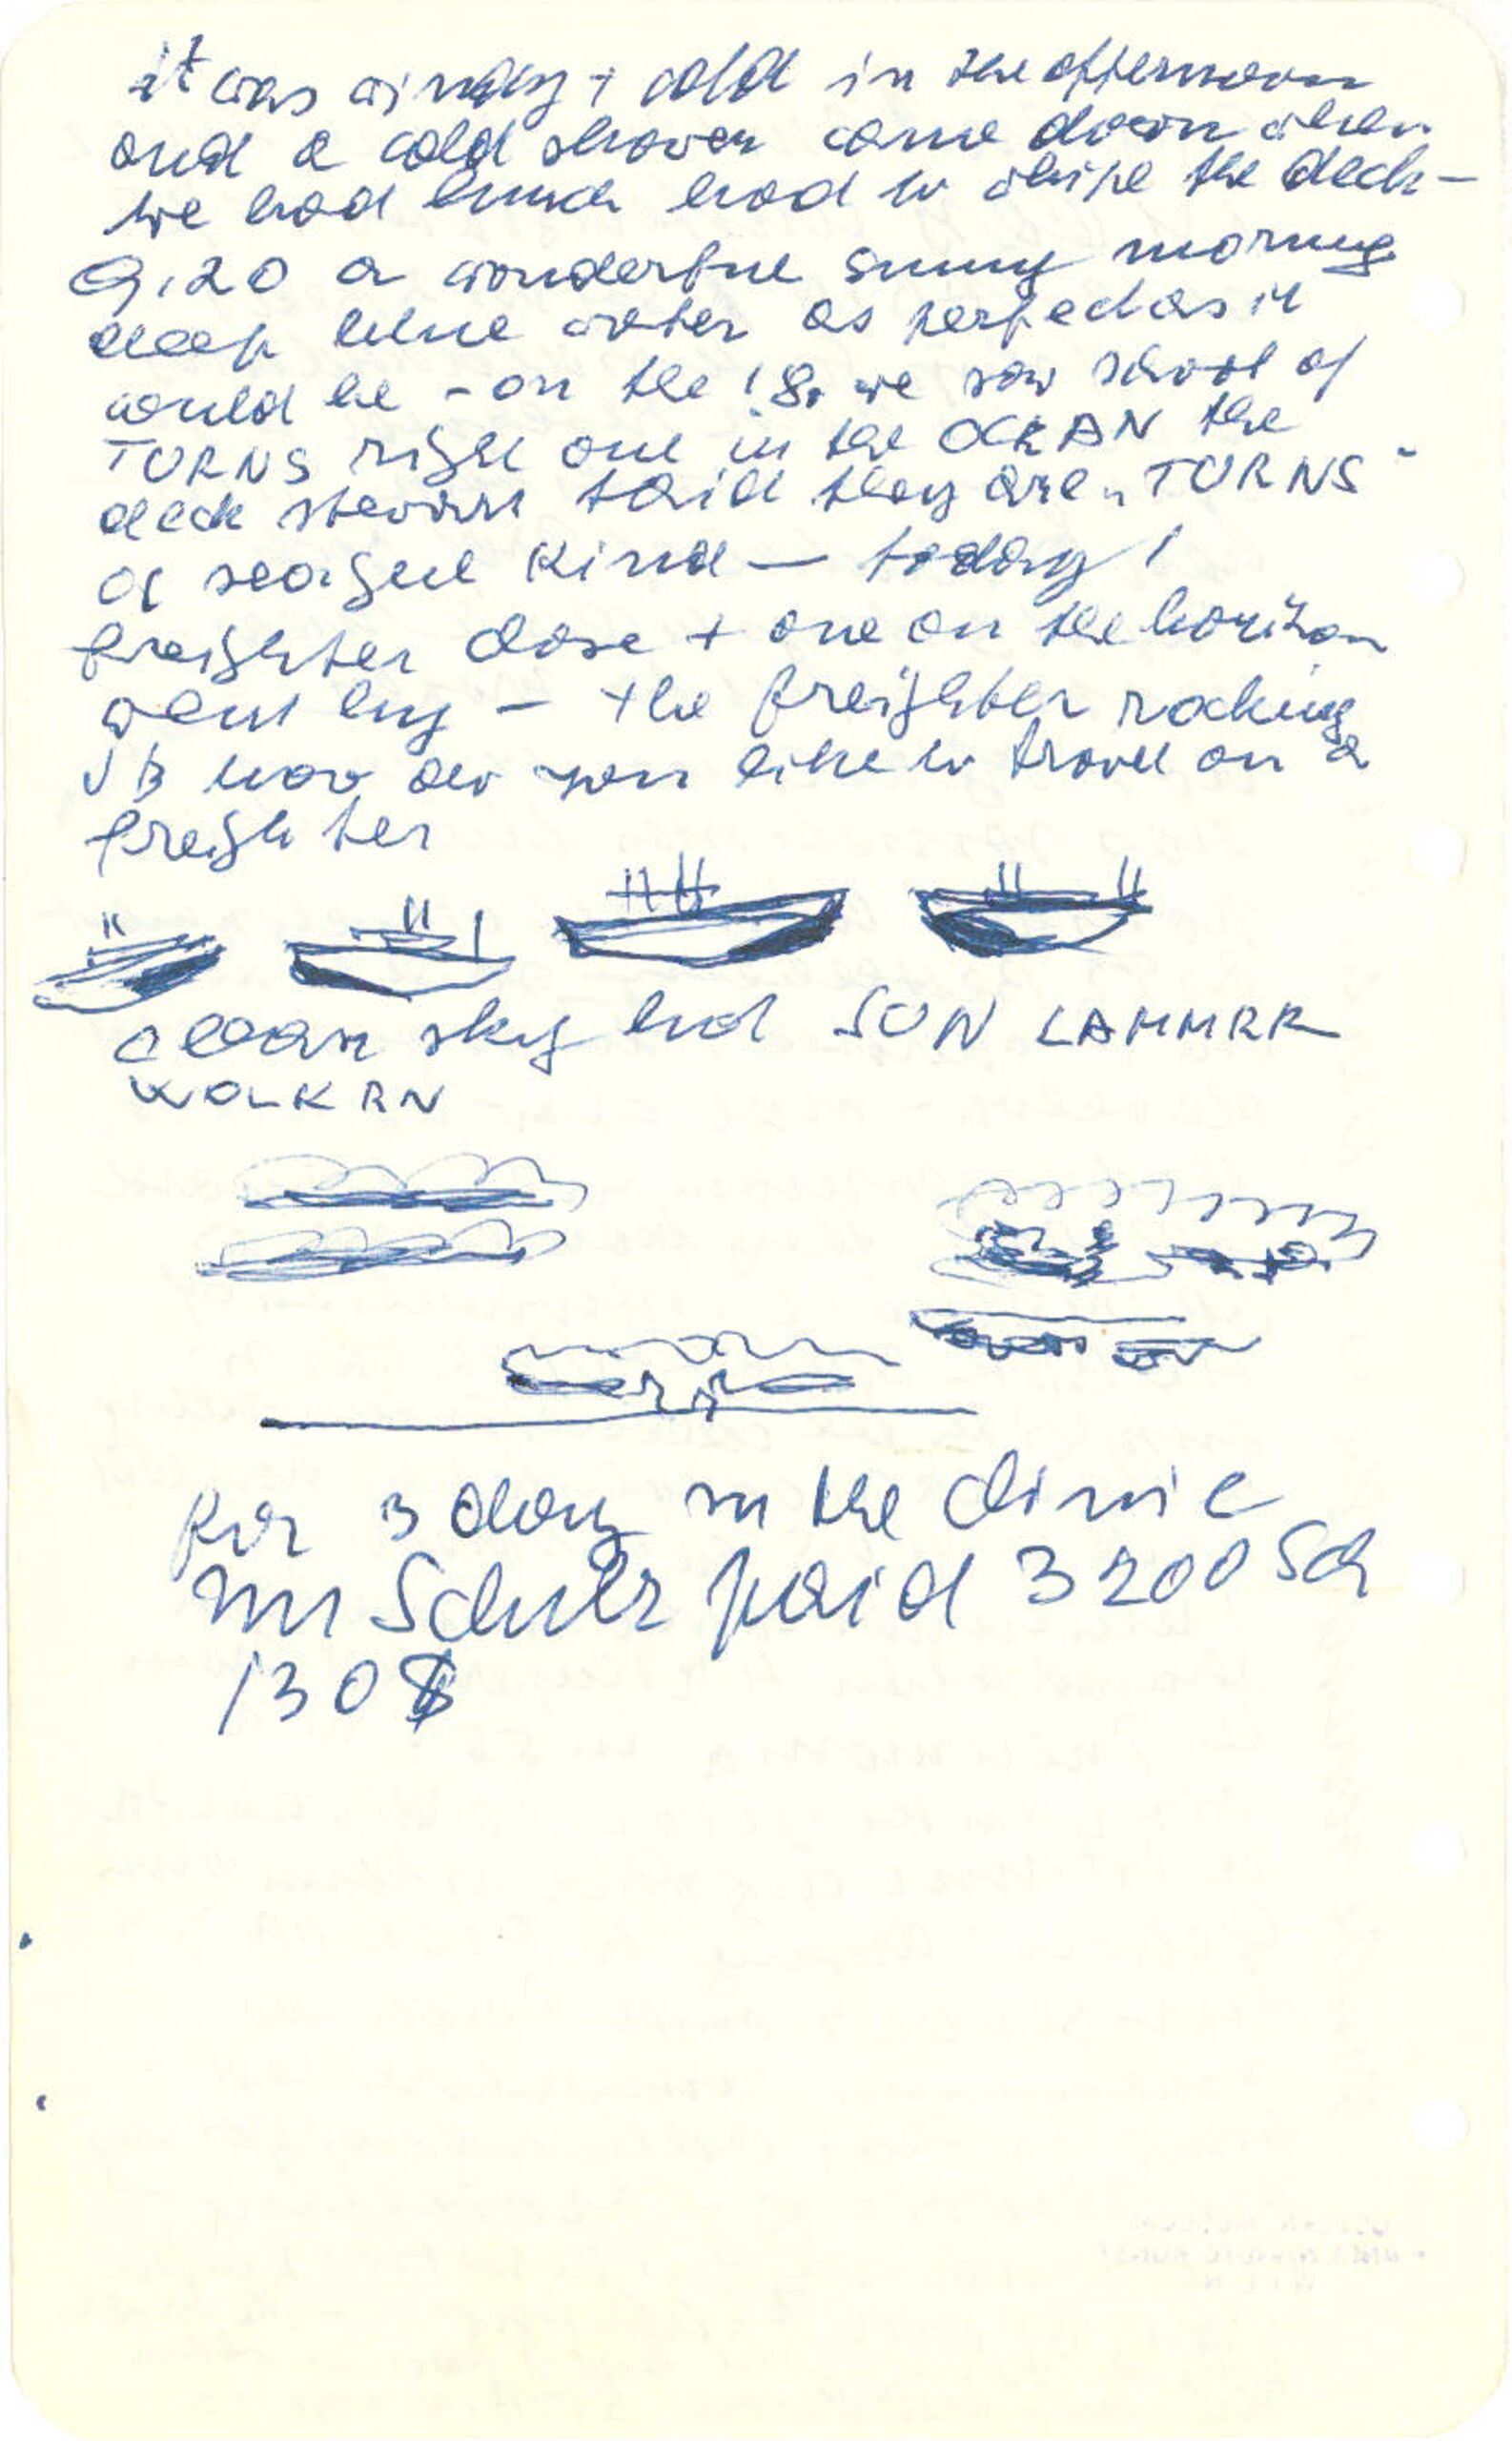 it was windy + cold in the afternoon
and a cold shower came down when
we had lunch had to wipe the deck -
9.20 a wonderful sunny morning
deep blue water as perfect as it
would be - on the 18. we saw school of
TURNS right out in the OCEAN the
deck steward said they are „TURNS"
of seagull kind - today 1
freighter close + one on the horizon
went by - the freighter rocking
JB how do you like to travel on a
freighter
clear sky but SUN LAMMER
WOLKEN
for 3 days in the clinic
Mr Schulz paid 3200 Sch
130$